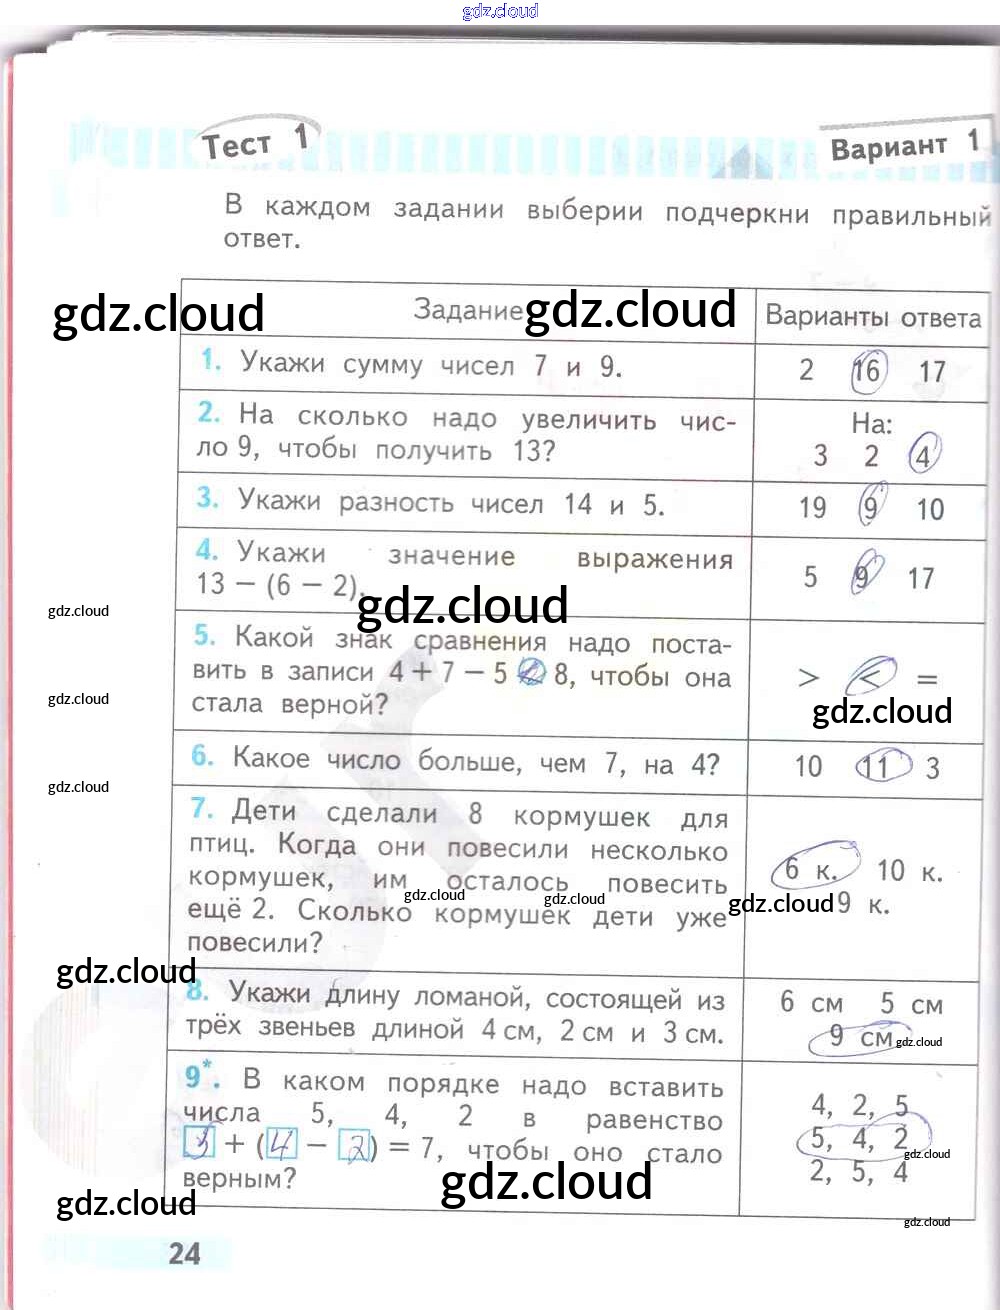 gdz.cloud
Тест 1
Вариант 1
В каждом задании выберии подчеркни правильный
ответ.
Задание
Варианты ответа
gdz.cloud
gdz.cloud
1. Укажи сумму чисел 7 и 9.
2 16 17
2. На сколько надо увеличить чис-
ло 9, чтобы получить 13?
На:
3 2 4
3. Укажи разность чисел 14 и 5.
19 9 10
4. Укажи значение выражения
13 − (6 − 2).
5 9 17
gdz.cloud
gdz.cloud
5. Какой знак сравнения надо поста-
вить в записи 4 + 7 − 5 < 8, чтобы она
стала верной?
> < =
gdz.cloud
gdz.cloud
6. Какое число больше, чем 7, на 4?
10 11 3
gdz.cloud
7. Дети сделали 8 кормушек для
птиц. Когда они повесили несколько
кормушек, им осталось повесить
ещё 2. Сколько кормушек дети уже
повесили?
6 к. 10 к.
9 к.
gdz.cloud
gdz.cloud
gdz.cloud
gdz.cloud
8. Укажи длину ломаной, состоящей из
трёх звеньев длиной 4 см, 2 см и 3 см.
6 см 5 см
9 см
gdz.cloud
9*. В каком порядке надо вставить
числа 5, 4, 2 в равенство
5 + (4 − 2) = 7, чтобы оно стало
верным?
4, 2, 5
5, 4, 2
2, 5, 4
gdz.cloud
gdz.cloud
gdz.cloud
gdz.cloud
24